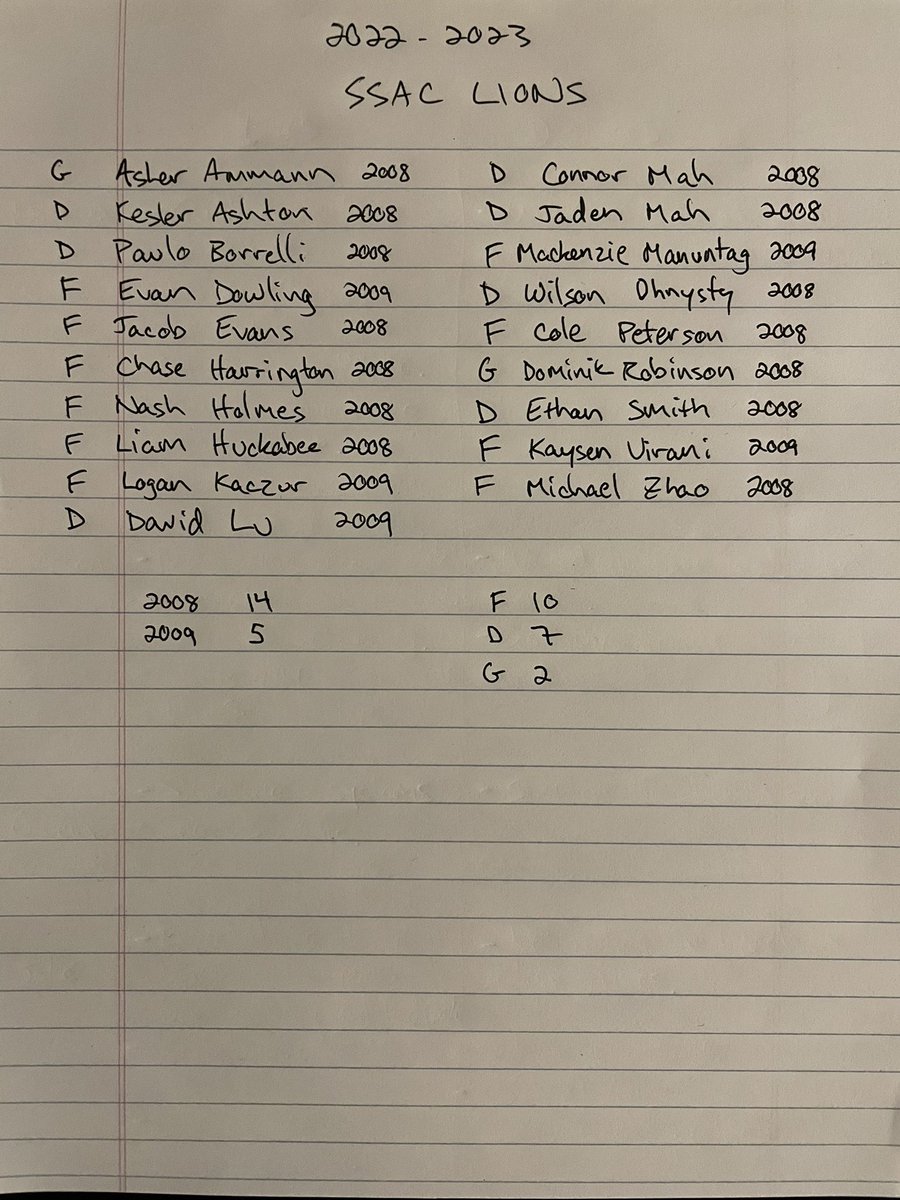 2022 - 2023
SSAC LIONS
G Asher Ammann 2008
D Kesler Ashton 2008
D Paulo Borrelli 2008
F Evan Dowling 2009
F Jacob Evans 2008
F Chase Harrington 2008
F Nash Holmes 2008
F Liam Huckabee 2008
F Logan Kaczur 2009
D David Lu 2009
D Connor Mah 2008
D Jaden Mah 2008
F Mackenzie Manuntag 2009
D Wilson Ohnysty 2008
F Cole Peterson 2008
G Dominik Robinson 2008
D Ethan Smith 2008
F Kaysen Virani 2009
F Michael Zhao 2008
2008 14
2009 5
F 10
D 7
G 2